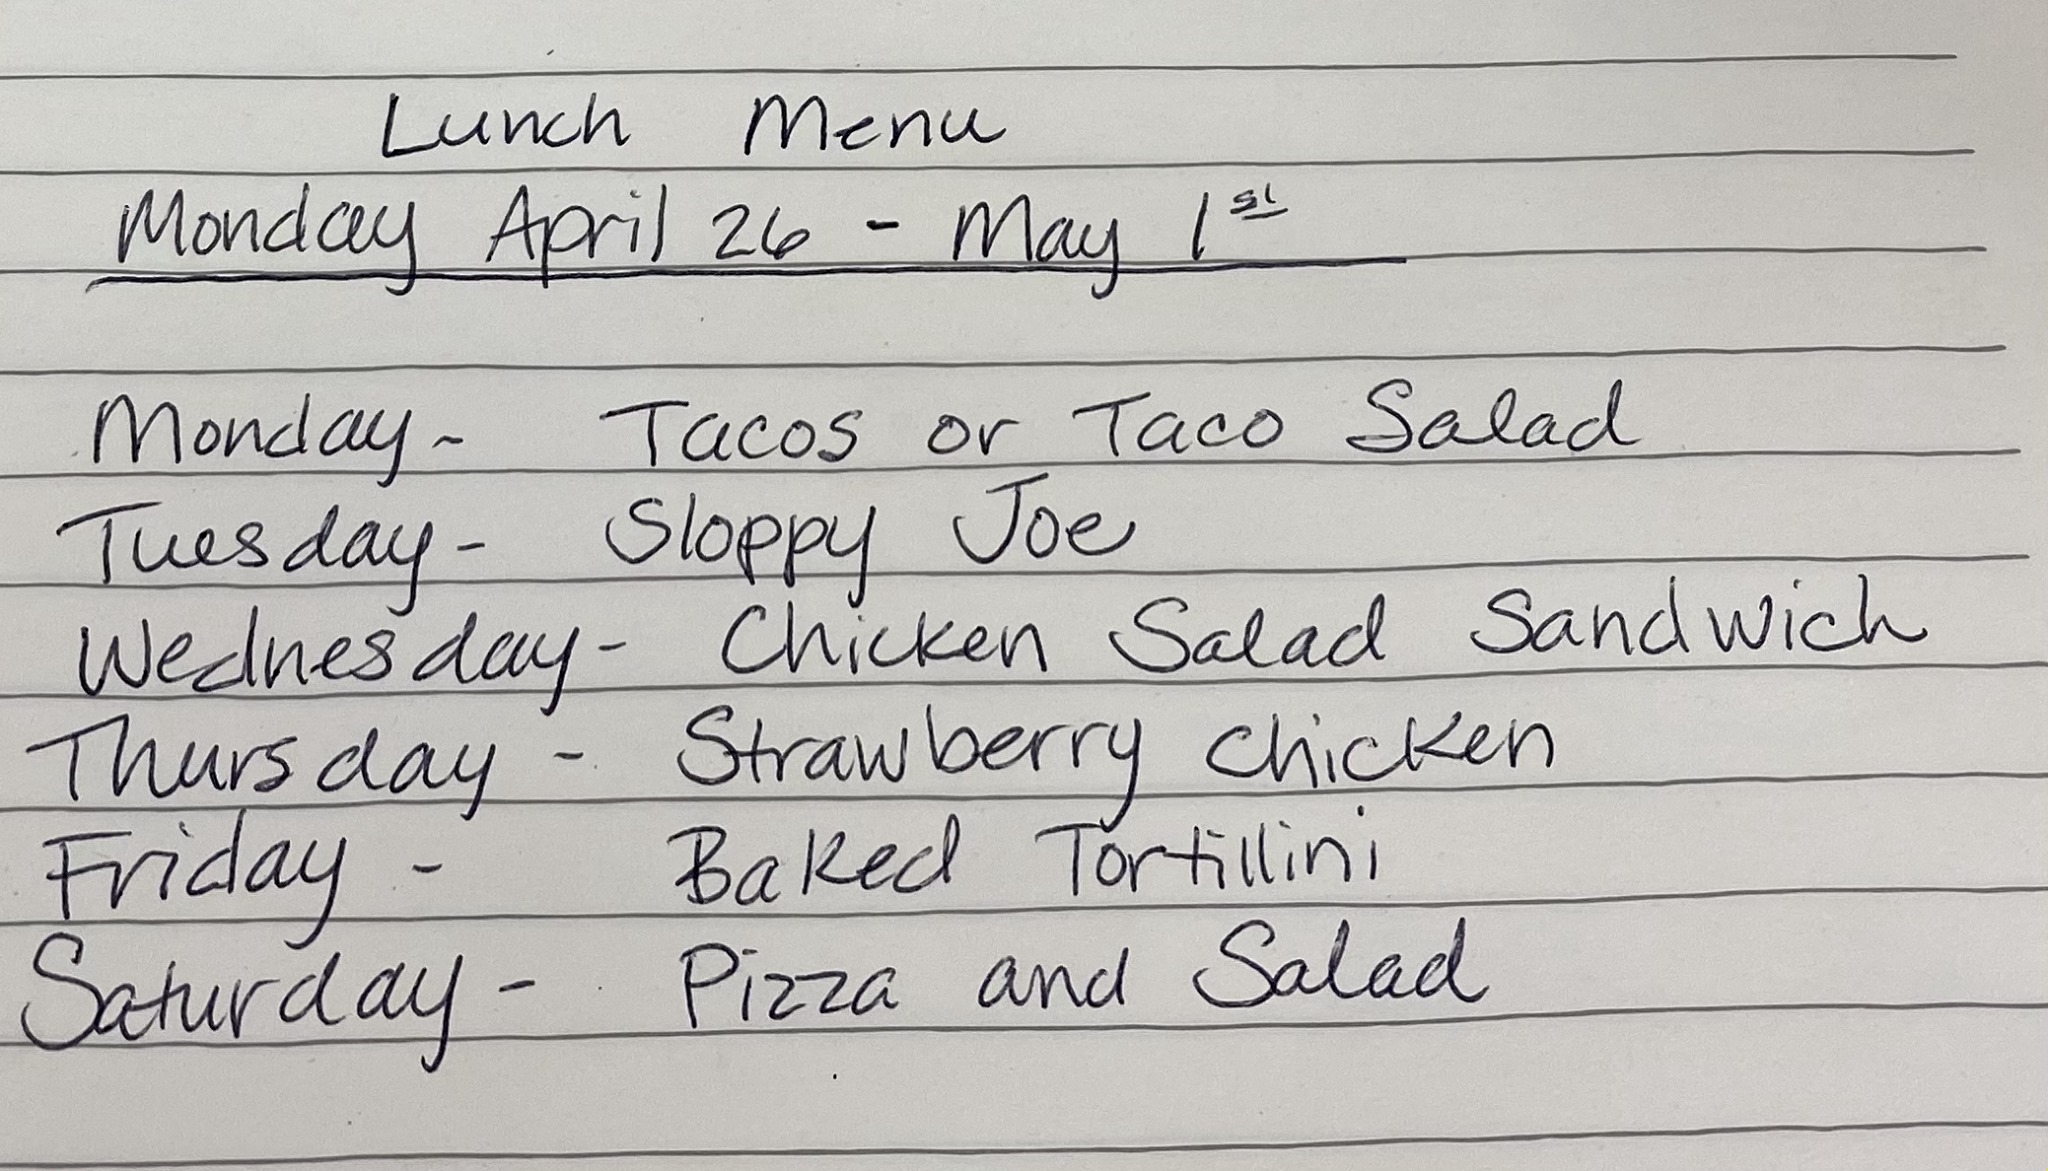 Lunch Menu
Monday April 26 - May 1st
Monday - Tacos or Taco Salad
Tuesday - Sloppy Joe
Wednesday - Chicken Salad Sandwich
Thursday - Strawberry Chicken
Friday - Baked Tortillini
Saturday - Pizza and Salad